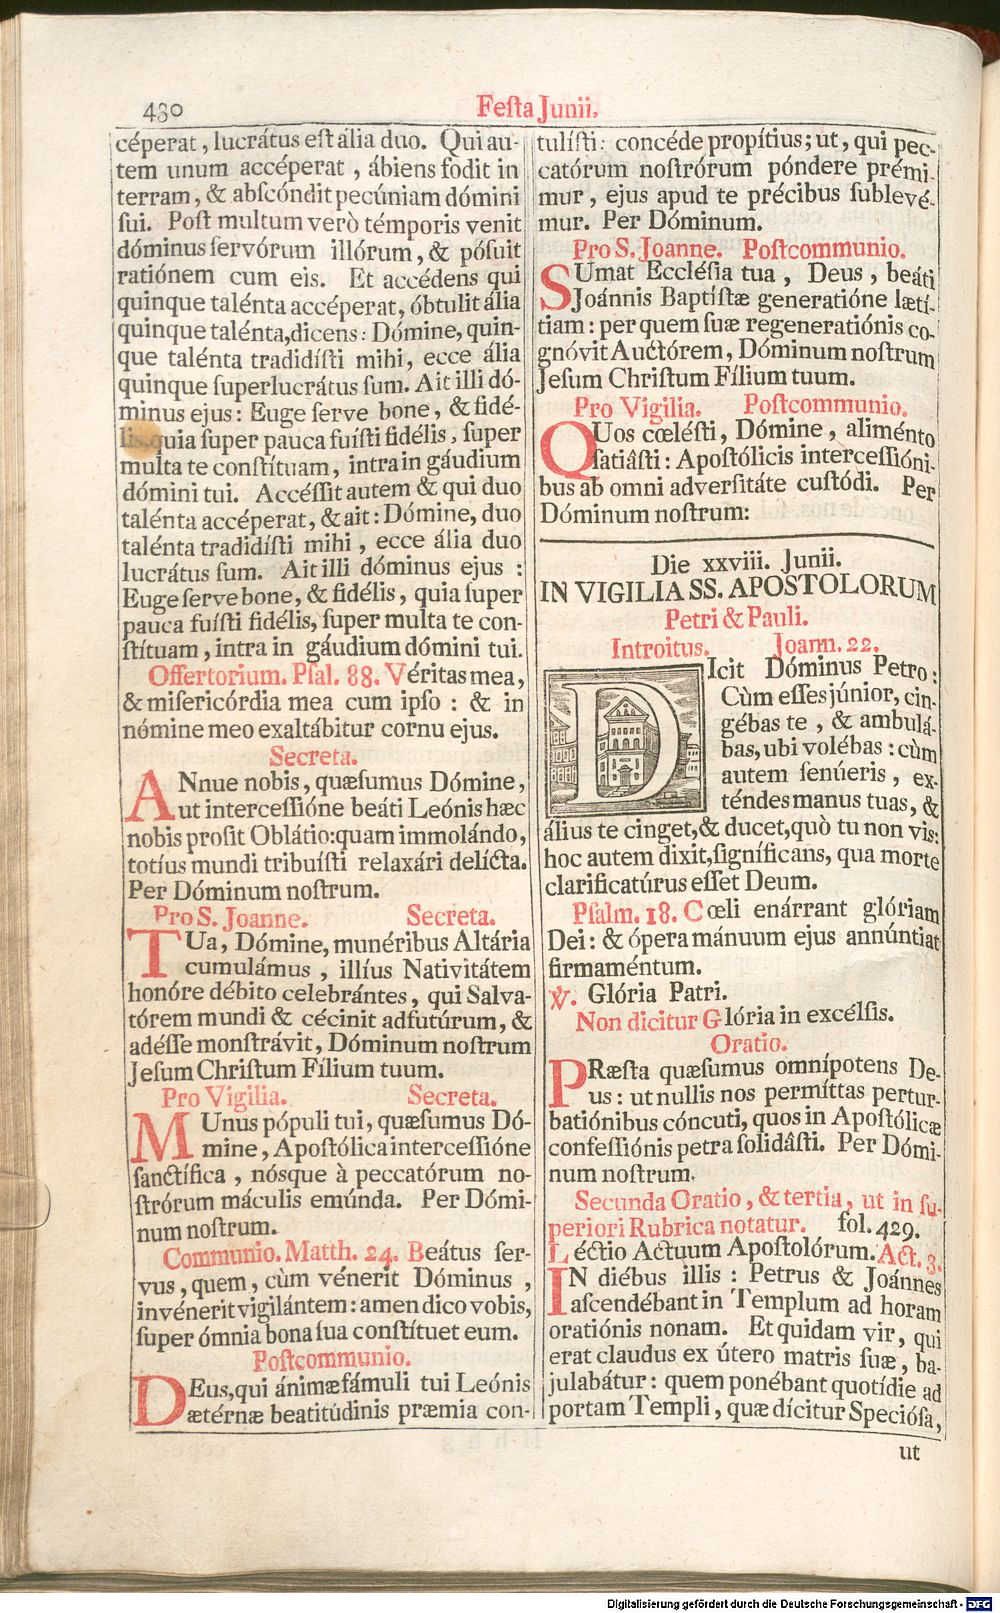 430
Feſta Junii.
céperat, lucrátus eſt ália duo. Qui au-
tem unum accéperat, ábiens fodit in
terram, & abſcóndit pecúniam dómini
ſui. Poſt multum verò témporis venit
dóminus ſervórum illórum, & póſuit
ratiónem cum eis. Et accédens qui
quinque talénta accéperat, óbtulit ália
quinque talénta, dicens: Dómine, quin-
que talénta tradidíſti mihi, ecce ália
quinque ſuperlucrátus ſum. Ait illi dó-
minus ejus: Euge ſerve bone, & fidé-
lis, quia ſuper pauca fuíſti fidélis, ſuper
multa te conſtítuam, intra in gáudium
dómini tui. Accéſſit autem & qui duo
talénta accéperat, & ait: Dómine, duo
talénta tradidíſti mihi, ecce ália duo
lucrátus ſum. Ait illi dóminus ejus:
Euge ſerve bone, & fidélis, quia ſuper
pauca fuíſti fidélis, ſuper multa te con-
ſtítuam, intra in gáudium dómini tui.
Offertorium. Pſal. 88. Véritas mea,
& miſericórdia mea cum ipſo: & in
nómine meo exaltábitur cornu ejus.
Secreta.
ANnue nobis, quæſumus Dómine,
ut interceſſióne beáti Leónis hæc
nobis proſit Oblátio: quam immolándo,
totíus mundi tribuíſti relaxári delícta.
Per Dóminum noſtrum.
Pro S. Joanne. Secreta.
TUa, Dómine, munéribus Altária
cumulámus, illíus Nativitátem
honóre débito celebrántes, qui Salva-
tórem mundi & cécinit adfutúrum, &
adéſſe monſtrávit, Dóminum noſtrum
Jeſum Chriſtum Fílium tuum.
Pro Vigilia. Secreta.
MUnus pópuli tui, quæſumus Dó-
mine, Apoſtólica interceſſióne
ſanctífica, nósque à peccatórum no-
ſtrórum máculis emúnda. Per Dómi-
num noſtrum.
Communio. Matth. 24. Beátus ſer-
vus, quem, cùm vénerit Dóminus,
invénerit vigilántem: amen dico vobis,
ſuper ómnia bona ſua conſtítuet eum.
Poſtcommunio.
DEus, qui ánimæ fámuli tui Leónis
ætérnæ beatitúdinis præmia con-
tulíſti: concéde propítius; ut, qui pec-
catórum noſtrórum póndere prémi-
mur, ejus apud te précibus ſublevé-
mur. Per Dóminum.
Pro S. Joanne. Poſtcommunio.
SUmat Ecclésia tua, Deus, beáti
Joánnis Baptíſtæ generatióne lætí-
tiam: per quem ſuæ regeneratiónis co-
gnóvit Auctórem, Dóminum noſtrum
Jeſum Chriſtum Fílium tuum.
Pro Vigilia. Poſtcommunio.
QUos cœléſti, Dómine, aliménto
ſatiâſti: Apoſtólicis interceſſióni-
bus ab omni adverſitáte cuſtódi. Per
Dóminum noſtrum:
Die xxviii. Junii.
IN VIGILIA SS. APOSTOLORUM
Petri & Pauli.
Introitus. Joann. 22.
DIcit Dóminus Petro:
Cùm eſſes júnior, cin-
gébas te, & ambulá-
bas, ubi volébas: cùm
autem ſenúeris, ex-
téndes manus tuas, &
álius te cinget, & ducet, quò tu non vis:
hoc autem dixit, ſigníficans, qua morte
clarificatúrus eſſet Deum.
Pſalm. 18. Cœli enárrant glóriam
Dei: & ópera mánuum ejus annúntiat
firmaméntum.
℣. Glória Patri.
Non dicitur Glória in excélſis.
Oratio.
PRæſta quæſumus omnípotens De-
us: ut nullis nos permíttas pertur-
batiónibus cóncuti, quos in Apoſtólicæ
confeſſiónis petra ſolidâſti. Per Dómi-
num noſtrum.
Secunda Oratio, & tertia, ut in ſu-
periori Rubrica notatur. fol. 429.
Léctio Actuum Apoſtolórum. Act. 3.
IN diébus illis: Petrus & Joánnes
aſcendébant in Templum ad horam
oratiónis nonam. Et quidam vir, qui
erat claudus ex útero matris ſuæ, ba-
julabátur: quem ponébant quotídie ad
portam Templi, quæ dícitur Specióſa,
ut
Digitalisierung gefördert durch die Deutsche Forschungsgemeinschaft - DFG